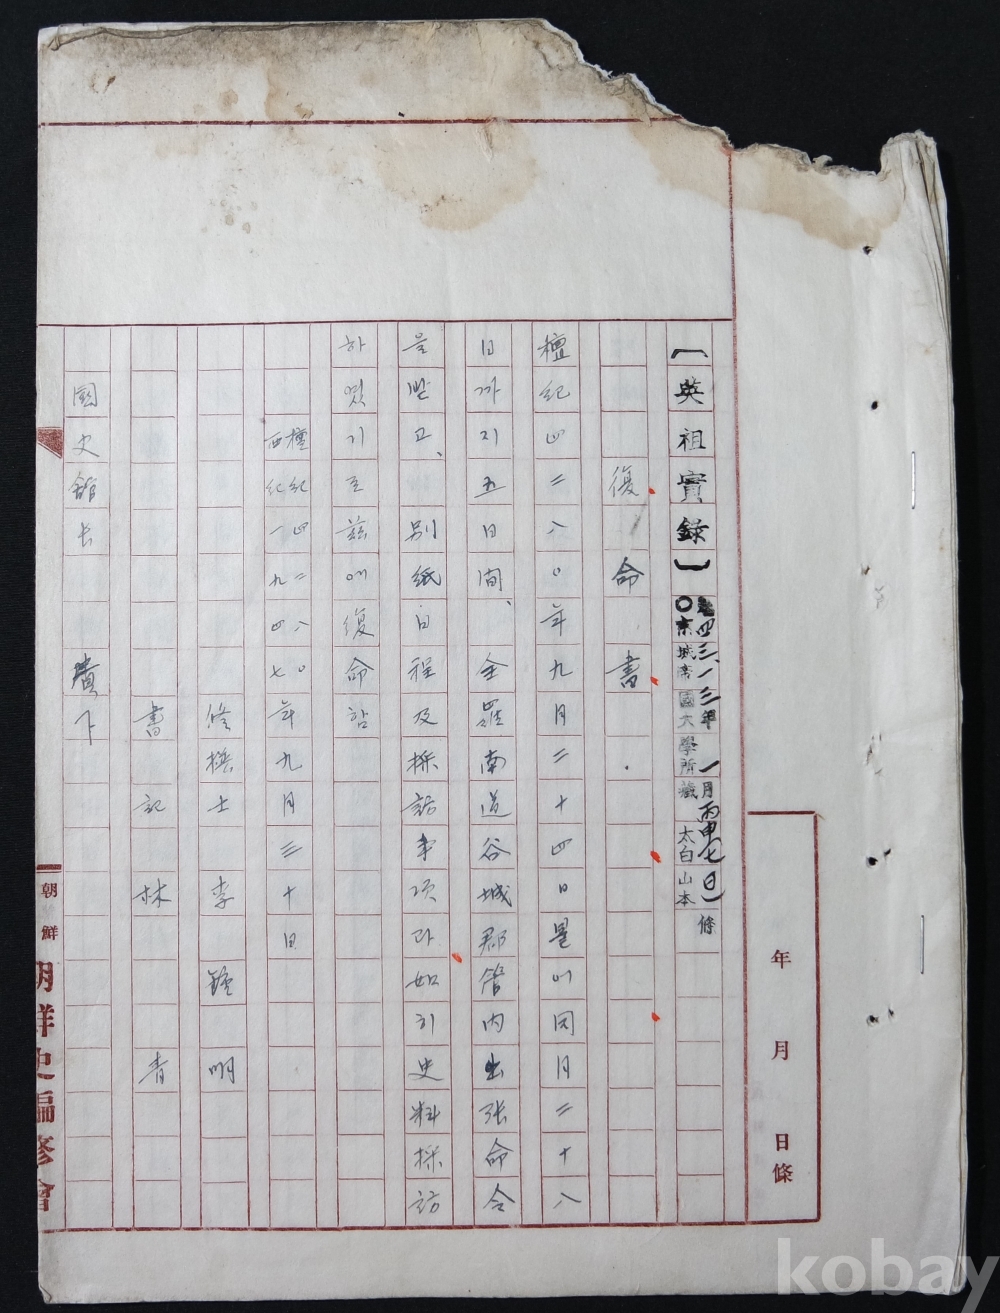 【英祖實錄】
四三、一三年一月丙申七日 條
〇京城帝國大學所藏 太白山本
復命書
檀紀四二八〇年九月二十四日붙이同月二十八
日까지五日間、全羅南道谷城郡管内出張命令
을받고、別紙日程及採訪事項과如히史料採訪
하였기로玆에復命함
檀紀四二八〇年九月三十日
西紀一九四七
修撰士 李 鍾 明
書記 林 青
國史館長 貴下
年 月 日條
朝鮮
朝鮮史編修會
kobay